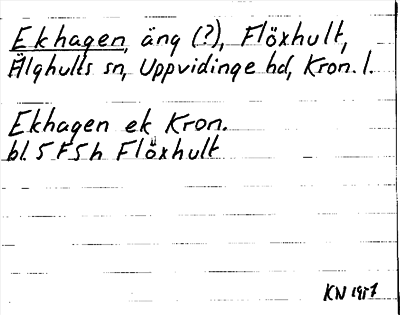 Ekhagen, äng (?), Flöxhult,
Älghults sn, Uppvidinge hd, Kron. l.
Ekhagen ek Kron.
bl. 5 F 5 h Flöxhult
KN 1957